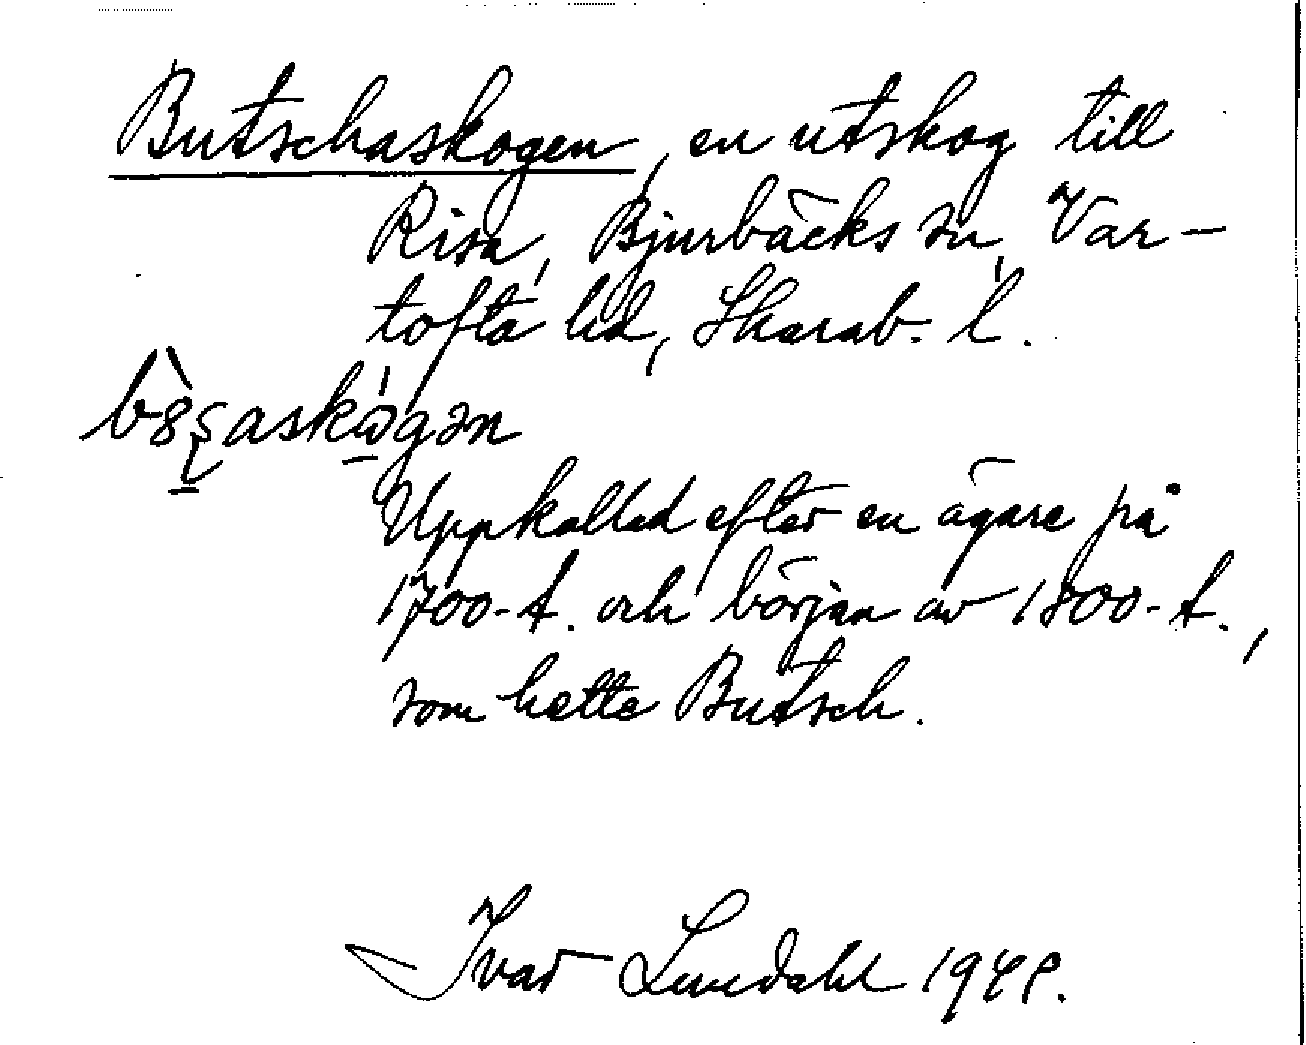 Butschaskogen, en utskog till
Risa, Bjurbäcks sn, Var-
tofta hd, Skarab. l.
Uppkallad efter en ägare på
1700-t. och början av 1800-t.,
som hette Butsch.
Ivar Lundahl